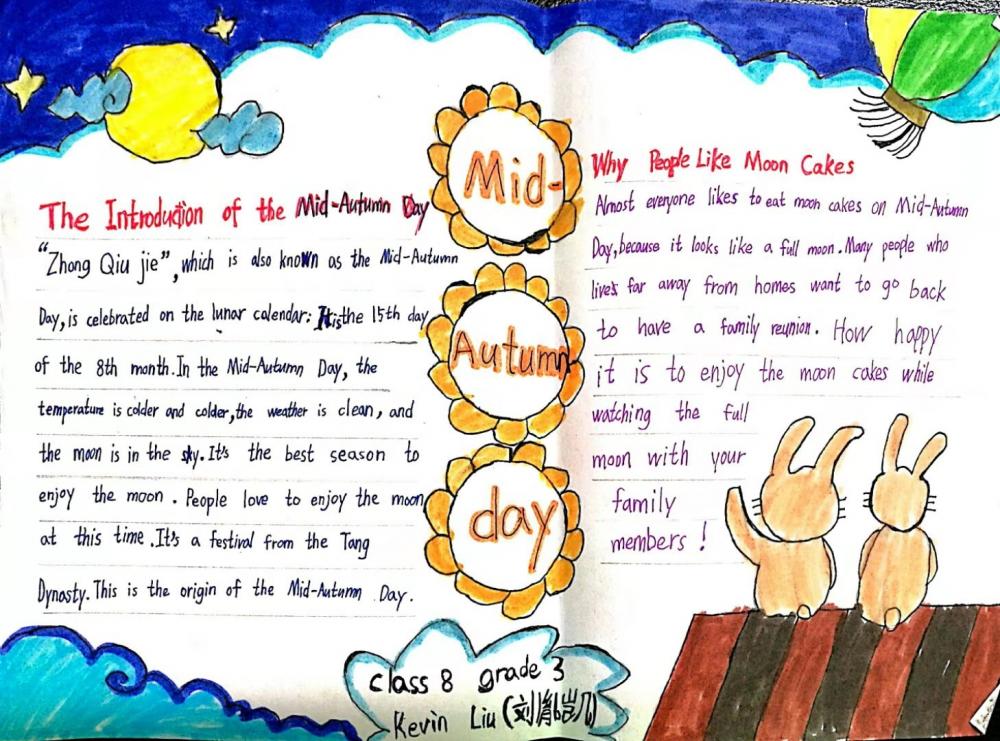 The Introduction of the Mid-Autumn Day
"Zhong Qiu jie", which is also known as the Mid-Autumn
Day, is celebrated on the lunar calendar: It is the 15th day
of the 8th month. In the Mid-Autumn Day, the
temperature is colder and colder, the weather is clean, and
the moon is in the sky. It's the best season to
enjoy the moon. People love to enjoy the moon
at this time. It's a festival from the Tang
Dynasty. This is the origin of the Mid-Autumn Day.
Mid-
Autumn
day
Why People Like Moon Cakes
Almost everyone likes to eat moon cakes on Mid-Autumn
Day, because it looks like a full moon. Many people who
lives far away from homes want to go back
to have a family reunion. How happy
it is to enjoy the moon cakes while
watching the full
moon with your
family
members!
class 8 grade 3
Kevin Liu (刘胤岂几)